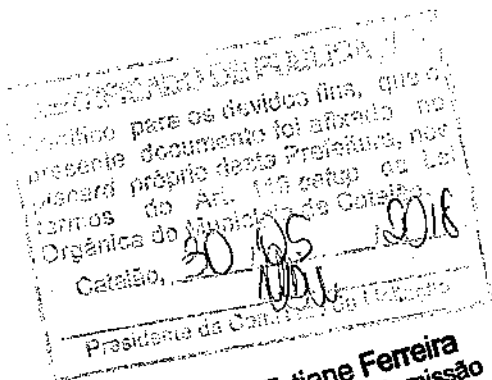 CERTIFICADO DE PUBLICA
Certifico para os devidos fins, que o
presente documento foi afixado no
placard próprio desta Prefeitura, nos
termos do Art. caput da Lei
Orgânica do Município de Catalão.
Catalão, 30 / 05 / 2018
Presidente da de Licitação
tiane Ferreira
missão